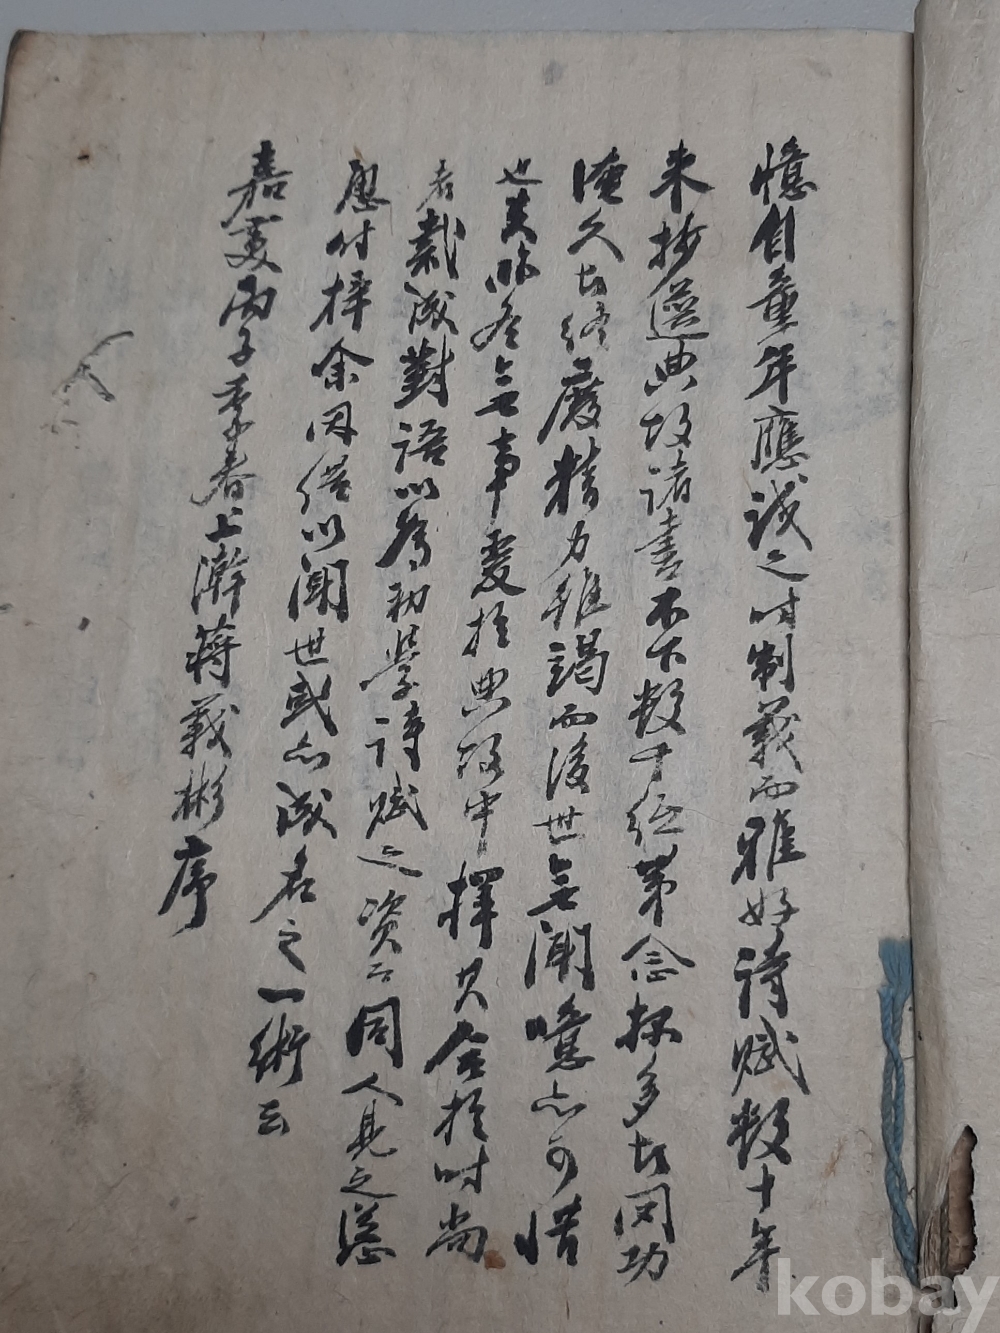 憶自童年應試之時制義而雅好詩賦數十年
來抄選典故諸書不下數千卷第念多者罔功
淹久者終廢精力雖竭而後世無聞噫亦可惜
也矣昨冬無事爰於典故中擇其合於時尚
者裁成對語以為初學詩賦之資云同人見之慫
慂付梓余因借以聞世或亦成名之一術云
嘉慶丙子季春上澣蔣義彬序
kobay